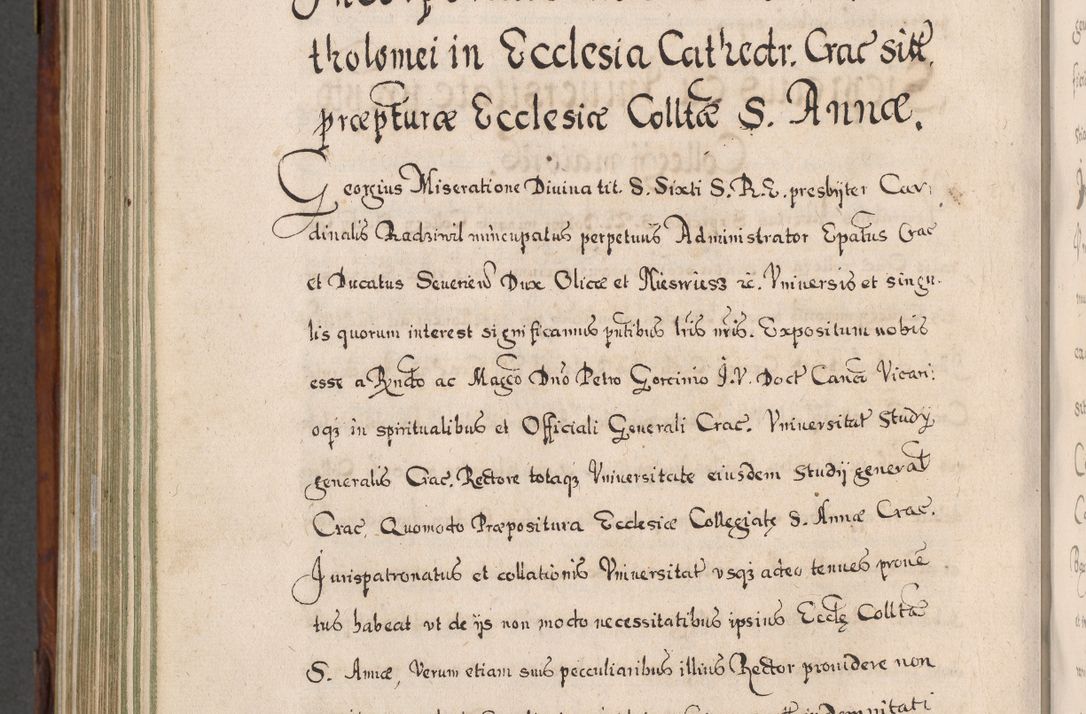 tholomei in Ecclesia Cathedr. Crac sitt.
præpturæ Ecclesiæ Colltæ S. Annæ.
Georgius Miseratione Divina tit. S. Sixti S. R. E. presbyter Car
dinalis Radziwil nuncupatus perpetuus Administrator Epatus Crac
et Ducatus Severien Dux Olicæ et Nieswiesz &c. Vniversis et singu
lis quorum interest significamus pntibus lris nris. Expositum nobis
esse a Rndo ac Magco Dno Petro Gorcinio J. V. Doct Canco Vicari
oqꝫ in spiritualibus et Officiali Generali Crac. Vniuersitat Study
generalis Crac. Rectore totaqꝫ Vniuersitate eiusdem Studij general
Crac, Quomodo Præpositura Ecclesiæ Collegiatę S. Annæ Crac.
Jurispatronatus et collationis Vniuersitat vsqꝫ adeo tenues proue
tus habeat vt de ijs non modo necessitatibus ipsius Ecclę Colltæ
S. Annæ, Verum etiam suis pecculiaribus illius Rector prouidere non